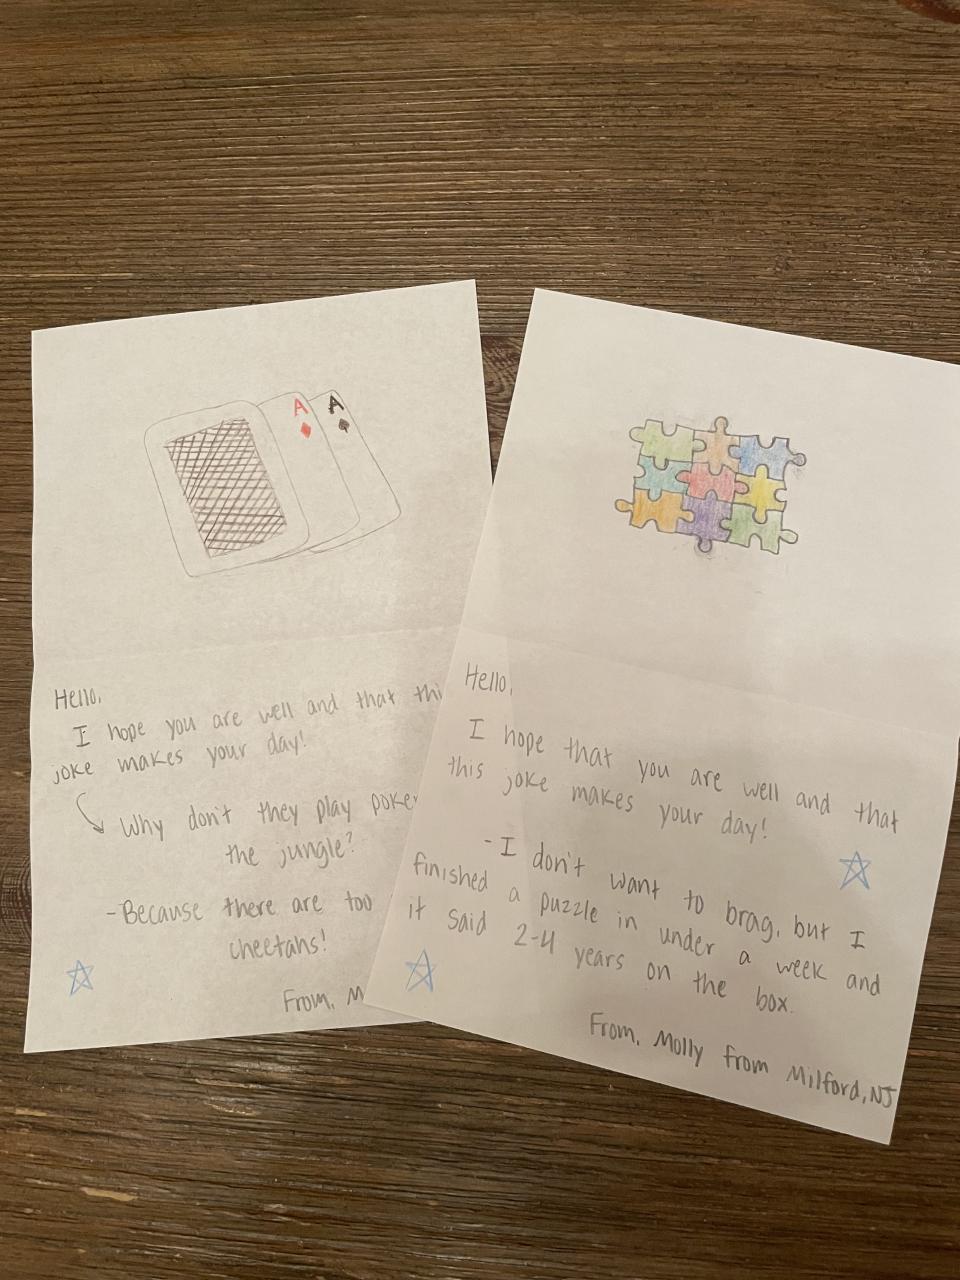 A
A
Hello,
I hope you are well and that thi
joke makes your day!
Why don't they play poker
the jungle?
-Because there are too
cheetahs!
From, M
Hello,
I hope that you are well and that
this joke makes your day!
-I don't want to brag, but I
finished a puzzle in under a week and
it said 2-4 years on the box.
From, Molly from Milford, NJ